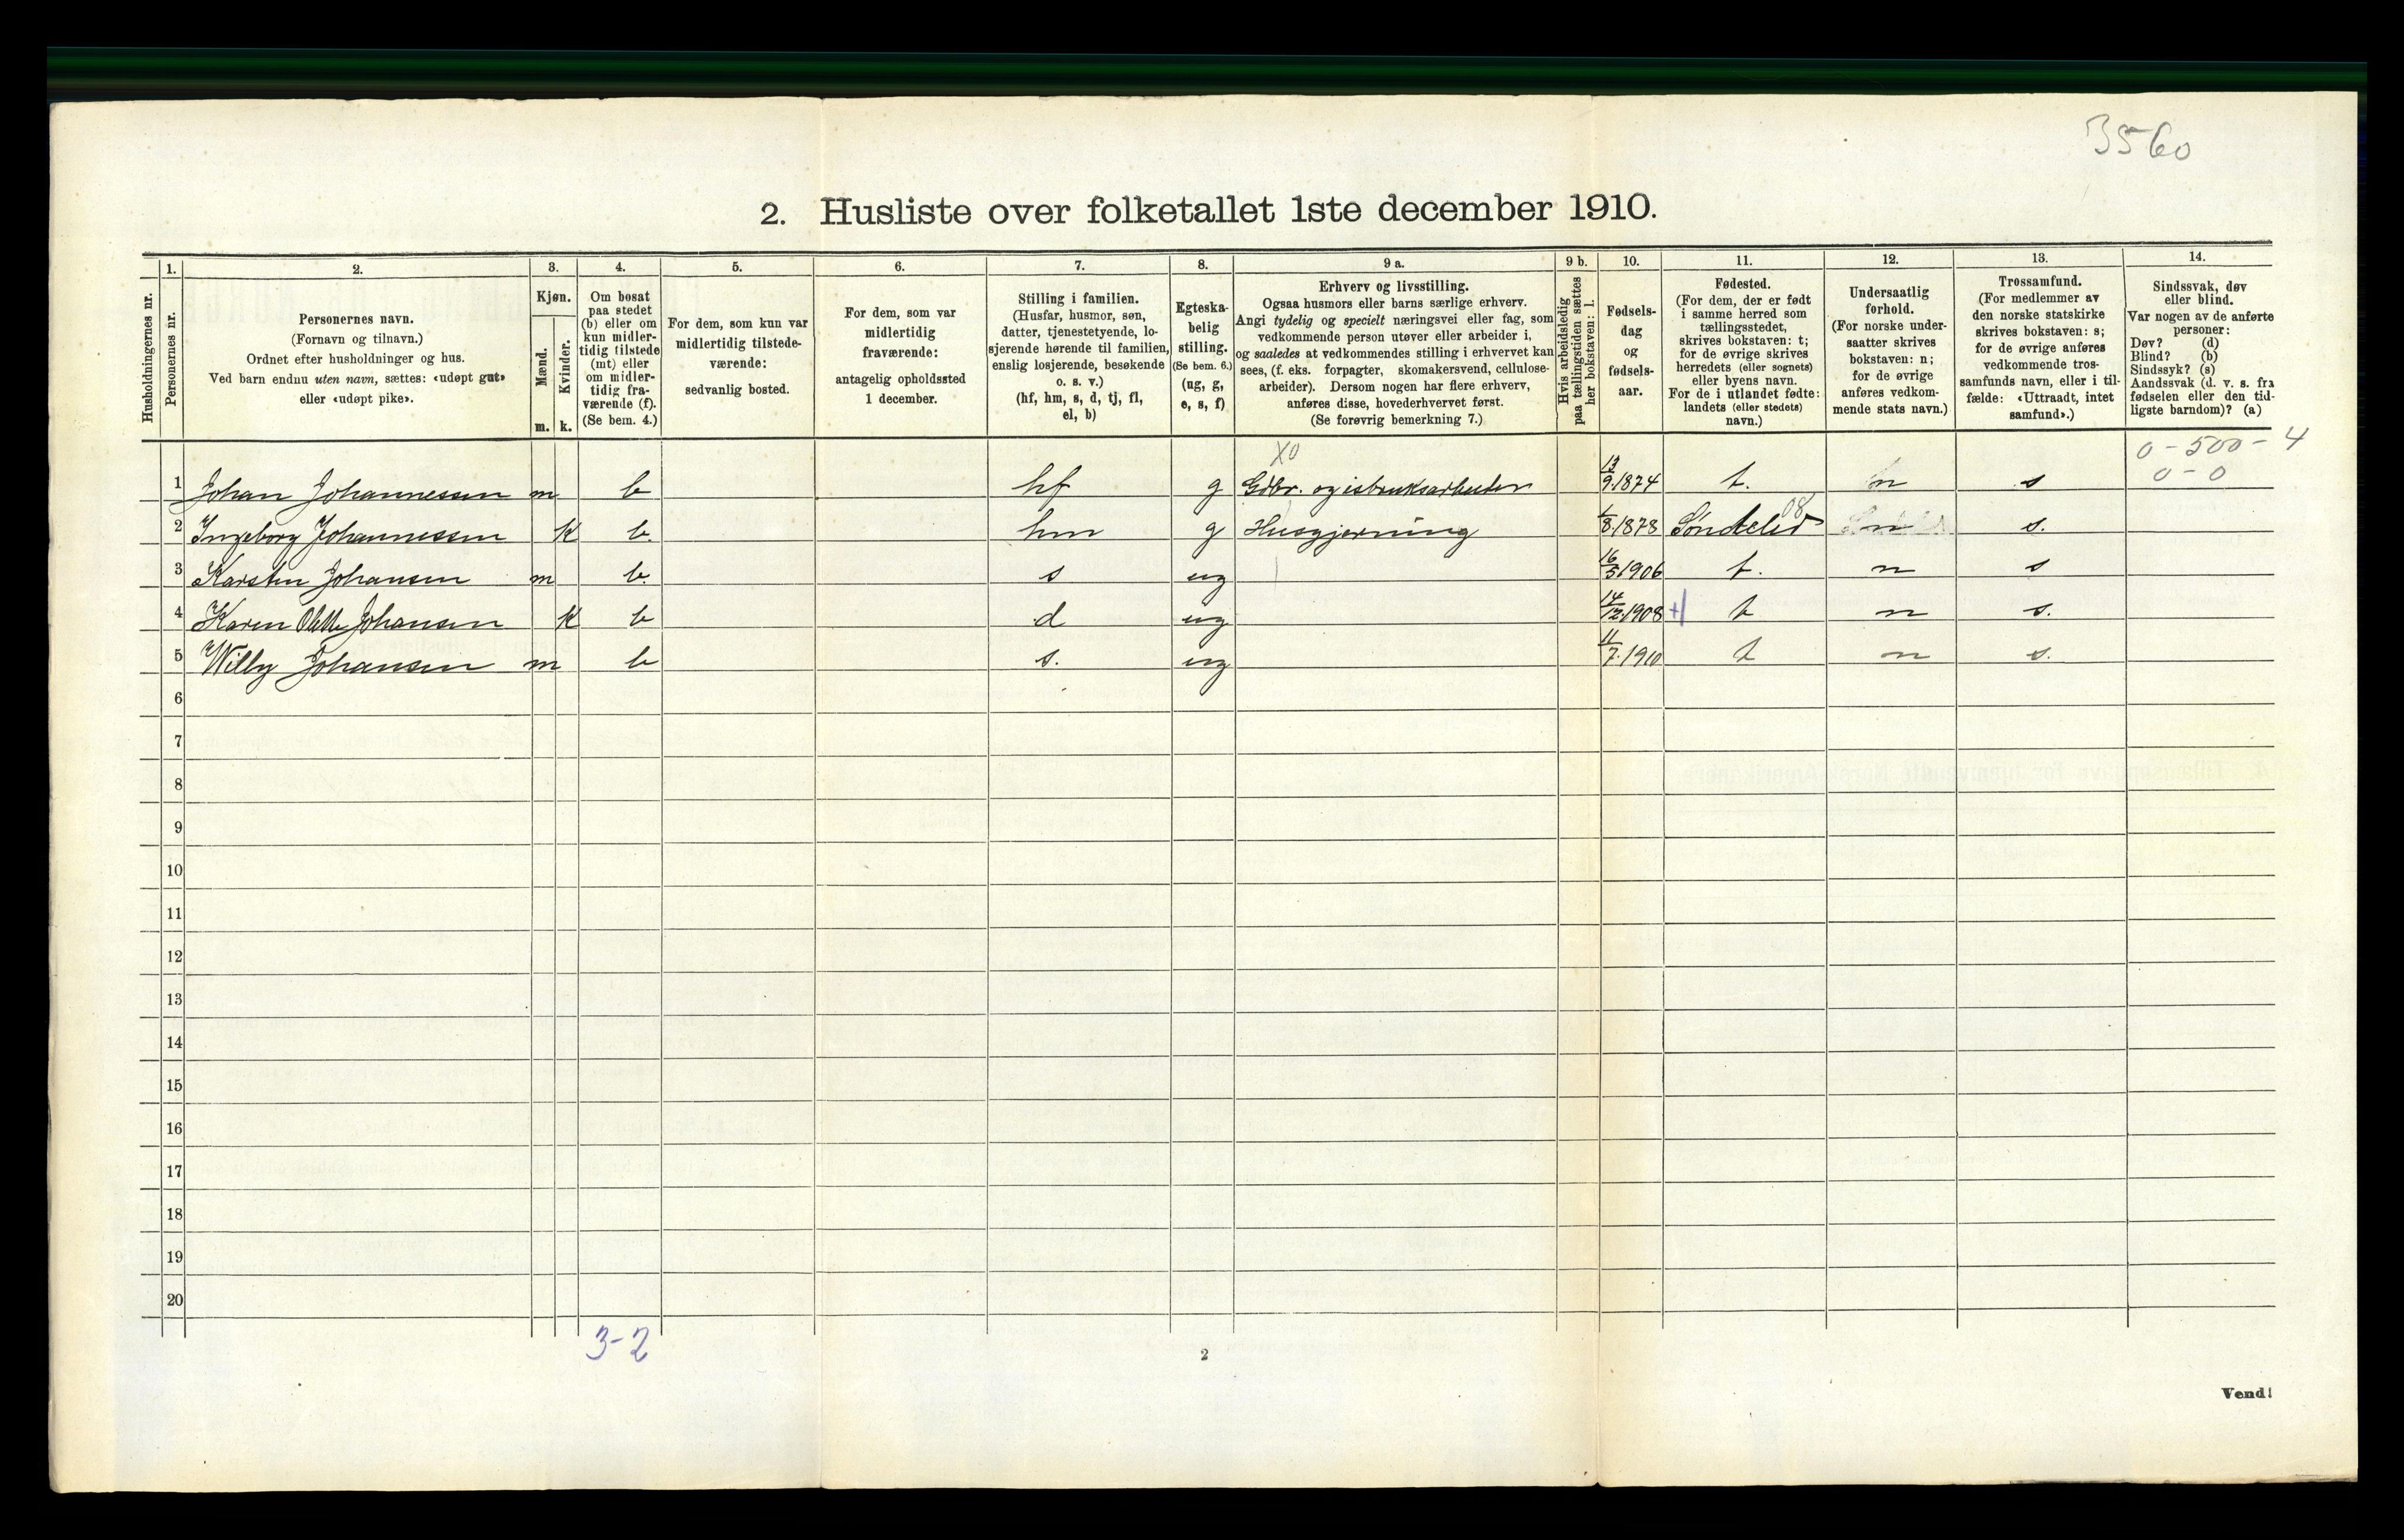 3560
2. Husliste over folketallet 1ste december 1910.
Husholdningernes nr.
1.
Personernes nr.
2.
Personernes navn.
(Fornavn og tilnavn.)
Ordnet efter husholdninger og hus.
Ved barn endnu uten navn, sættes: «udøpt gut»
eller «udøpt pike».
3.
Kjøn.
Mænd.
Kvinder.
m. k.
4.
Om bosat
paa stedet
(b) eller om
kun midler-
tidig tilstede
(mt) eller
om midler-
tidig fra-
værende (f).
(Se bem. 4.)
5.
For dem, som kun var
midlertidig tilstede-
værende:
sedvanlig bosted.
6.
For dem, som var
midlertidig
fraværende:
antagelig opholdssted
1 december.
7.
Stilling i familien.
(Husfar, husmor, søn,
datter, tjenestetyende, lo-
sjerende hørende til familien,
enslig losjerende, besøkende
o. s. v.)
(hf, hm, s, d, tj, fl,
el, b)
8.
Egteska-
belig
stilling.
(Se bem. 6.)
(ug, g,
e, s, f)
9 a.
Erhverv og livsstilling.
Ogsaa husmors eller barns særlige erhverv.
Angi tydelig og specielt næringsvei eller fag, som
vedkommende person utøver eller arbeider i,
og saaledes at vedkommendes stilling i erhvervet kan
sees, (f. eks. forpagter, skomakersvend, cellulose-
arbeider). Dersom nogen har flere erhverv,
anføres disse, hovederhvervet først.
(Se forøvrig bemerkning 7.)
9 b.
Hvis arbeidsledig
paa tællingstiden sættes
her bokstaven: l.
10.
Fødsels-
dag
og
fødsels-
aar.
11.
Fødested.
(For dem, der er født
i samme herred som
tællingsstedet,
skrives bokstaven: t;
for de øvrige skrives
herredets (eller sognets)
eller byens navn.
For de i utlandet fødte:
landets (eller stedets)
navn.)
12.
Undersaatlig
forhold.
(For norske under-
saatter skrives
bokstaven: n;
for de øvrige
anføres vedkom-
mende stats navn.)
13.
Trossamfund.
(For medlemmer av
den norske statskirke
skrives bokstaven: s;
for de øvrige anføres
vedkommende tros-
samfunds navn, eller i til-
fælde: «Uttraadt, intet
samfund».)
14.
Sindssvak, døv
eller blind.
Var nogen av de anførte
personer:
Døv? (d)
Blind? (b)
Sindssyk? (s)
Aandssvak (d. v. s. fra
fødselen eller den tid-
ligste barndom)? (a)
X0
0-500-4
0-0
1 Johan Johannessen m b hf g Gdbr. og isbruksarbeider 13/9 1874 t. n s
2 Ingeborg Johannessen k b. hm g Husgjerning 1/8 1878 Søndeled 08 n s.
3 Karsten Johansen m b. s ug 16/5 1906 t. n s
4 Karen Olette Johansen k b d ug 14/12 1908 t n s.
5 Willy Johansen m b s. ug 11/7 1910 t n s.
6
7
8
9
10
11
12
13
14
15
16
17
18
19
20
3-2
2
Vend!